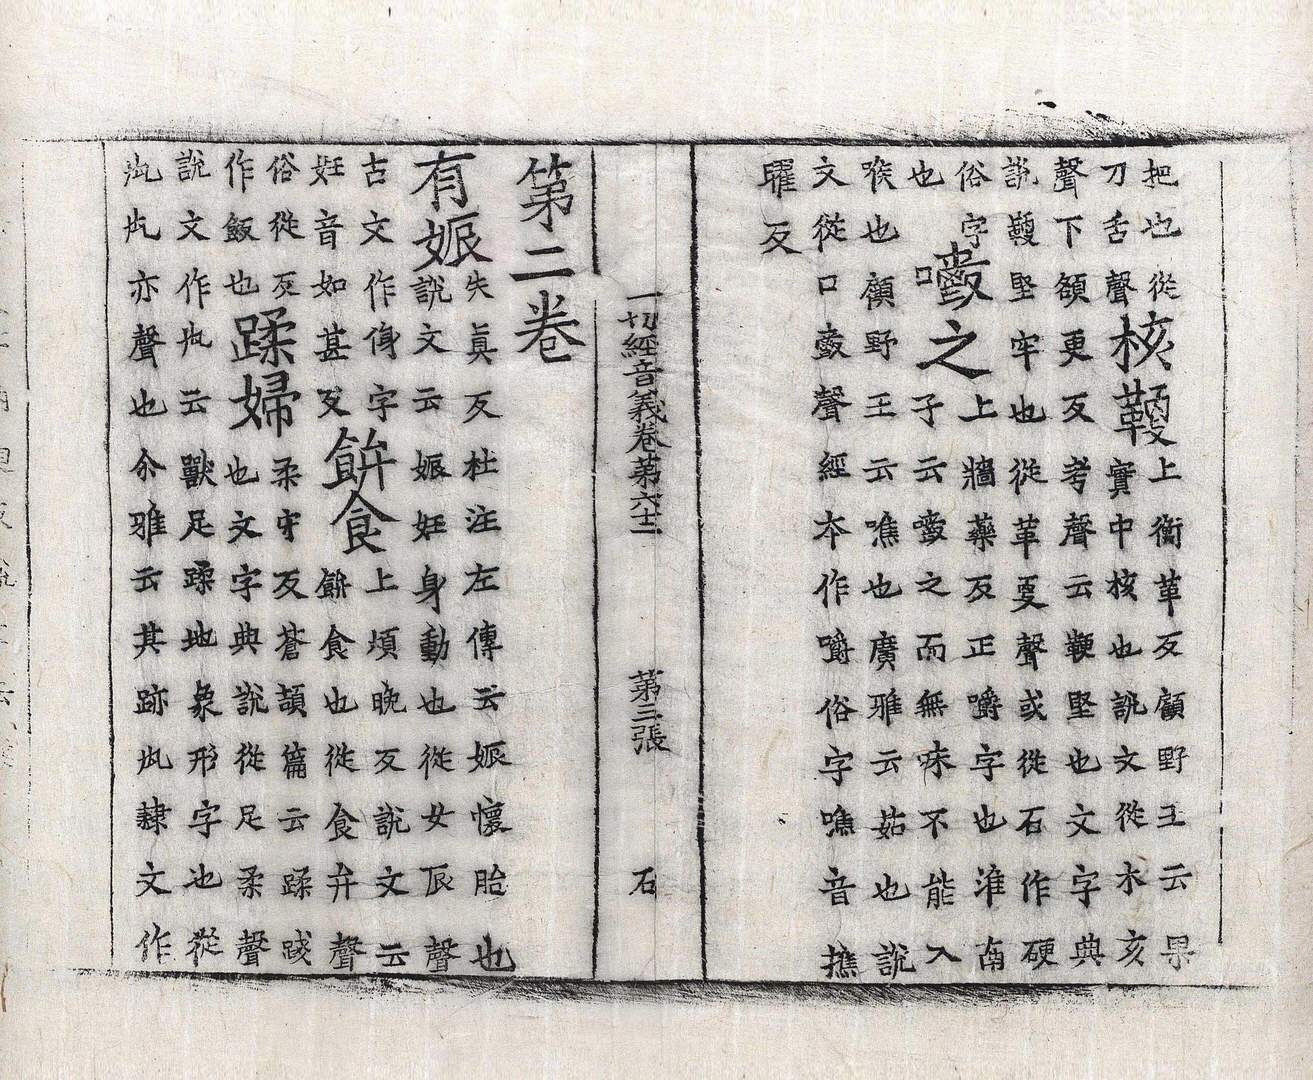 把也從
刀舌聲
核鞕
上衡革反顧野王云果
實中核也說文從木亥
聲下額更反考聲云鞕堅也文字典
說鞕堅牢也從革更聲或從石作硬
俗字
也
之
上牆藥反正嚼字也淮南
子云之而無味不能入
喉也顧野王云噍也廣雅云茹也說
文從口聲經本作嚼俗字噍音樵
曜反
一切經音義卷第六十二 第三張 石
第二卷
有娠
失真反杜注左傳云娠懷胎也
說文云娠妊身動也從女辰聲
古文作字
妊音如甚反
餅食
上煩晚反說文云
餅食也從食弁聲
俗從反
作飯也
蹂婦
柔守反蒼頡篇云蹂踐
也文字典說從足柔聲
說文作云獸足蹂地象形字也從
九亦聲也尒雅云其跡隸文作